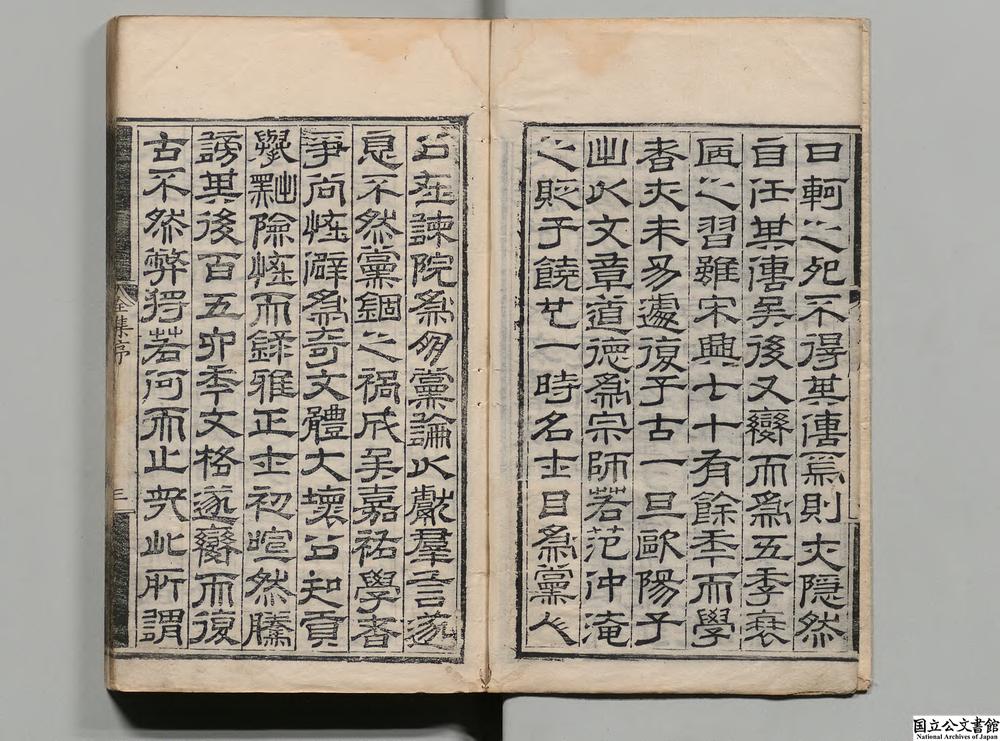 曰軻之死不得其傳焉則夫隱然
自任其傳矣後又變而爲五季衰
陋之習雖宋興七十有餘年而學
者夫未易遽復于古一旦歐陽子
出以文章道德爲宗師若范仲淹
之貶于饒也一時名士目爲黨人
公在諫院爲朋黨論以獻羣言遂
息不然黨錮之禍成矣嘉祐學者
爭尚怪僻爲奇文體大壞公知貢
舉黜險怪而錄雅正士初喧然騰
謗其後百五六年文格遂變而復
古不然弊將若何而止哉此所謂
全集序
三
国立公文書館
National Archives of Japan